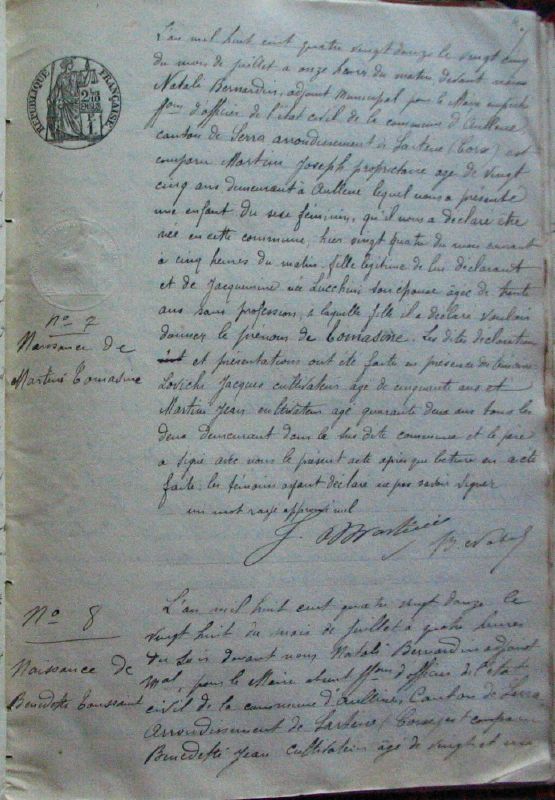 RÉPUBLIQUE FRANÇAISE
L'an mil huit cent quatre vingt douze le vingt cinq
du mois de juillet à onze heures du matin devant nous
Natali Bernardin, adjoint Municipal pour le Maire empêché
ffons d'officier de l'état civil de la commune d'Aullene,
canton de Serra arrondissement de Sartene (Corse) est
comparu Martini Joseph propriétaire age de vingt
cinq ans demeurant à Aullene lequel nous a présenté
une enfant du sexe féminin, qu'il nous a déclaré être
née en cette commune, hier vingt quatre du mois courant
à cinq heures du matin, fille légitime de lui déclarant
et de Jacquemine née Lucchini son épouse âgée de trente
ans sans profession, à laquelle fille il a déclaré vouloir
donner le prénom de Tomasine. Les dites déclaration
et présentations ont été faite en présence des témoins
Lovichi Jacques cultivateur age de cinquante ans et
Martini Jean cultivateur agé quarante deux ans tous les
deux demeurant dans la sus dite commune et le père
a signé avec nous le présent acte après que lecture en a été
faite. les témoins ayant déclaré ne pas savoir signer
un mot rayé approuvé nul
J. Martini
B. Natali
No 7
Naissance de
Martini Tomasine
No 8
Naissance de
Benedetti Toussaint
L'an mil huit cent quatre vingt douze le
vingt huit du mois de Juillet à quatre heures
du soir devant nous Natali Bernardin adjoint
mpal, pour le Maire absent ffons d'officier de l'état
civil de la commune d'Aullene, Canton de Serra
Arrondissement de Sartene (Corse) est comparu
Benedetti Jean cultivateur âgé de vingt et un